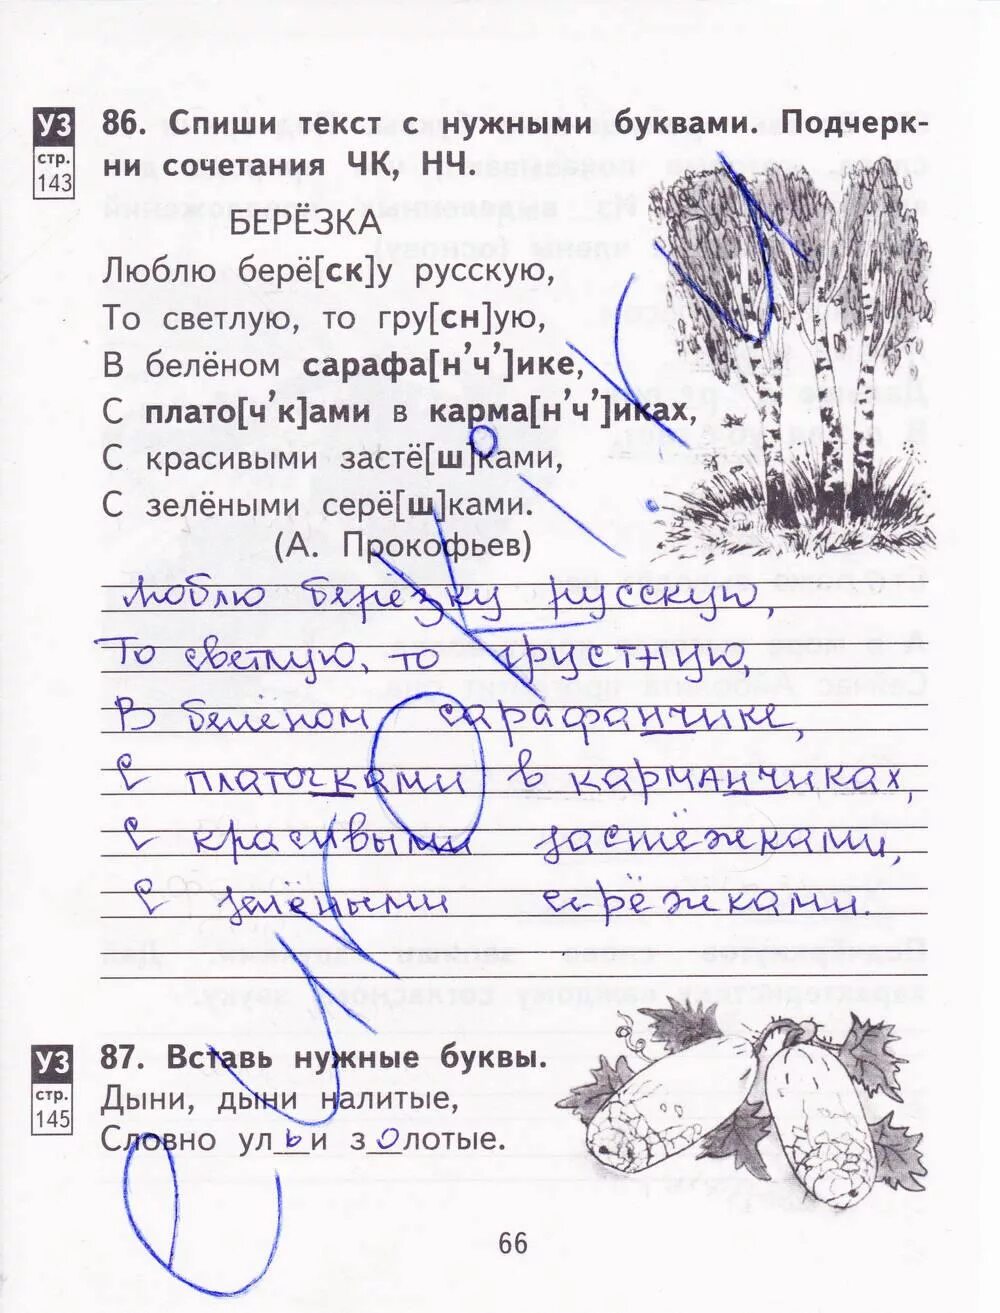 УЗ
стр.
143
86. Спиши текст с нужными буквами. Подчерк-
ни сочетания ЧК, НЧ.
БЕРЁЗКА
Люблю берё[ск]у русскую,
То светлую, то гру[сн]ую,
В белёном сарафа[н’ч’]ике,
С плато[ч’к]ами в карма[н’ч’]иках,
С красивыми застё[ш]ками,
С зелёными серё[ш]ками.
(А. Прокофьев)
Люблю берёзку русскую,
То светлую, то грустную,
В белёном сарафанчике,
С платочками в карманчиках,
С красивыми застёжками,
С зелёными серёжками.
УЗ
стр.
145
87. Вставь нужные буквы.
Дыни, дыни налитые,
Словно ульи золотые.
66